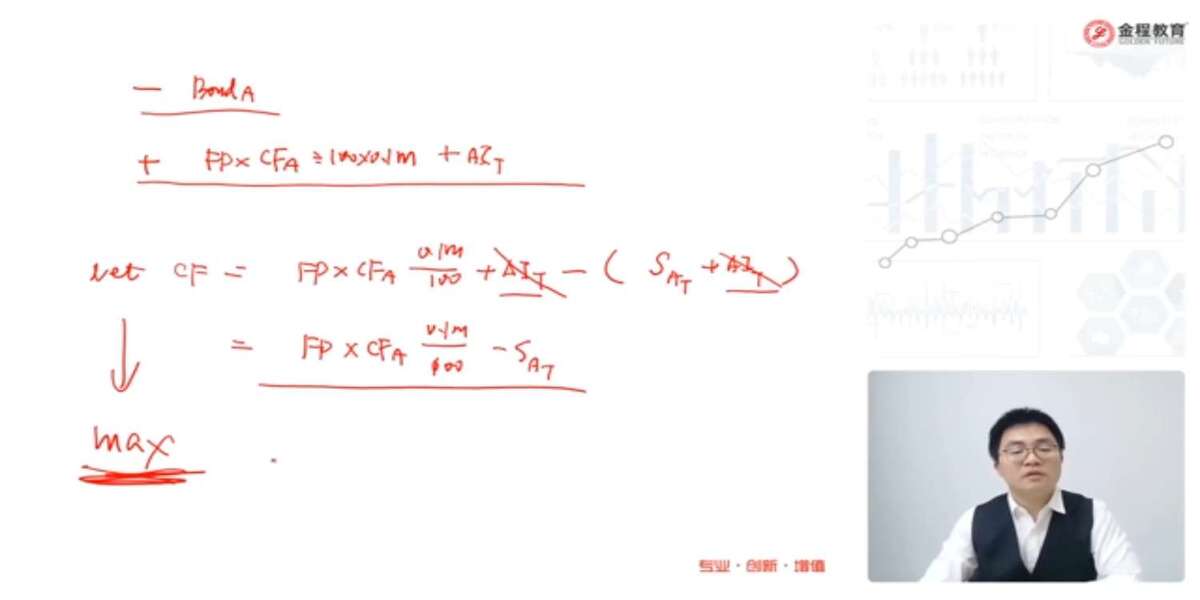 金程教育
GOLDEN FUTURE
— Bond A
+ FP × CF_A = 100×0.1m + AI_T
net CF = FP × CF_A 0.1m/100 + AI_T — ( S_AT + AI_T )
= FP × CF_A 0.1m/100 — S_AT
max
专业·创新·增值